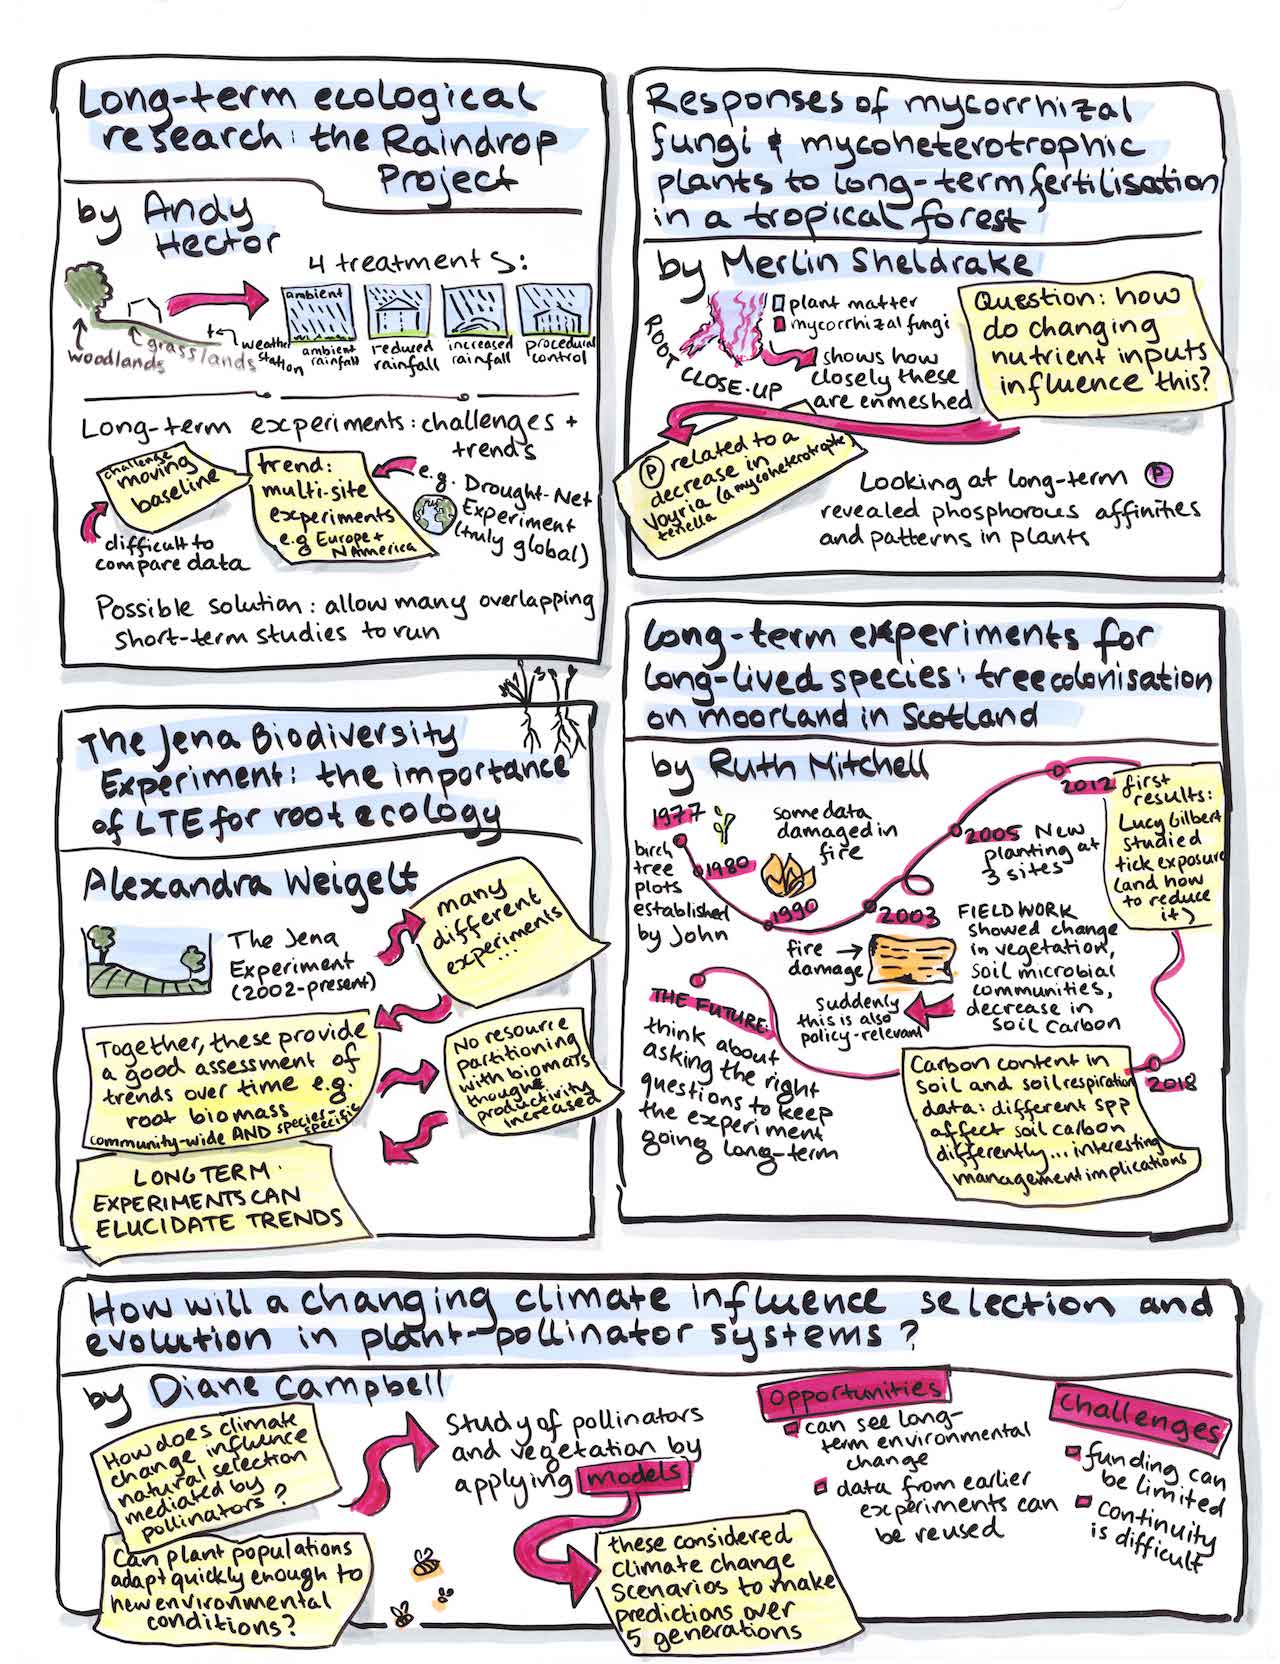 Long-term ecological
research: the Raindrop
Project
by Andy
Hector
4 treatments:
woodlands
grasslands
weather
station
ambient
ambient
rainfall
reduced
rainfall
increased
rainfall
procedural
control
Long-term experiments: challenges +
trends
challenge
moving
baseline
difficult to
compare data
trend:
multi-site
experiments
e.g Europe +
N America
e.g. Drought-Net
Experiment
(truly global)
Possible solution: allow many overlapping
short-term studies to run
Responses of mycorrhizal
fungi & mycoheterotrophic
plants to long-term fertilisation
in a tropical forest
by Merlin Sheldrake
ROOT
CLOSE-UP
plant matter
mycorrhizal fungi
shows how
closely these
are enmeshed
Question: how
do changing
nutrient inputs
influence this?
P related to a
decrease in
Voyria (a mycoheterotrophe)
tenella
Looking at long-term P
revealed phosphorous affinities
and patterns in plants
The Jena Biodiversity
Experiment: the importance
of LTE for root ecology
Alexandra Weigelt
The Jena
Experiment
(2002-present)
many
different
experiments
...
Together, these provide
a good assessment of
trends over time e.g.
root biomass
community-wide AND species-
specific
No resource
partitioning
with biomass
though
productivity
increased
LONG TERM
EXPERIMENTS CAN
ELUCIDATE TRENDS
Long-term experiments for
long-lived species: tree colonisation
on moorland in Scotland
by Ruth Mitchell
1977
birch
tree
plots
established
by John
1980
some data
damaged in
fire
1990
2003
FIELD WORK
showed change
in vegetation,
soil microbial
communities,
decrease in
soil carbon
fire
damage
Suddenly
this is also
policy-relevant
2005 New
planting at
3 sites
2012
first
results:
Lucy Gilbert
studied
tick exposure
(and how
to reduce
it)
2018
Carbon content in
soil and soil respiration
data: different spp
affect soil carbon
differently... interesting
management implications
THE FUTURE:
think about
asking the right
questions to keep
the experiment
going long-term
How will a changing climate influence selection and
evolution in plant-pollinator systems?
by Diane Campbell
How does climate
change influence
natural selection
mediated by
pollinators?
Can plant populations
adapt quickly enough to
new environmental
conditions?
Study of pollinators
and vegetation by
applying models
these considered
climate change
scenarios to make
predictions over
5 generations
Opportunities
can see long-
term environmental
change
data from earlier
experiments can
be reused
Challenges
funding can
be limited
continuity
is difficult